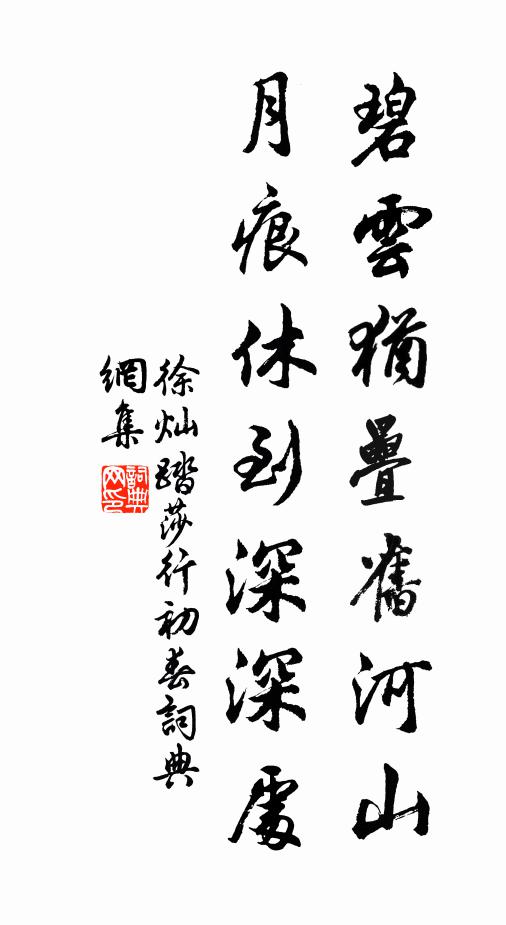 碧雲猶疊舊河山
月痕休到深深處
徐灿踏莎行初春詞典
網集
詞典網印